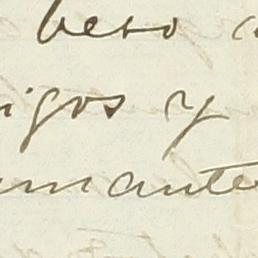 beso a
igos y
amante